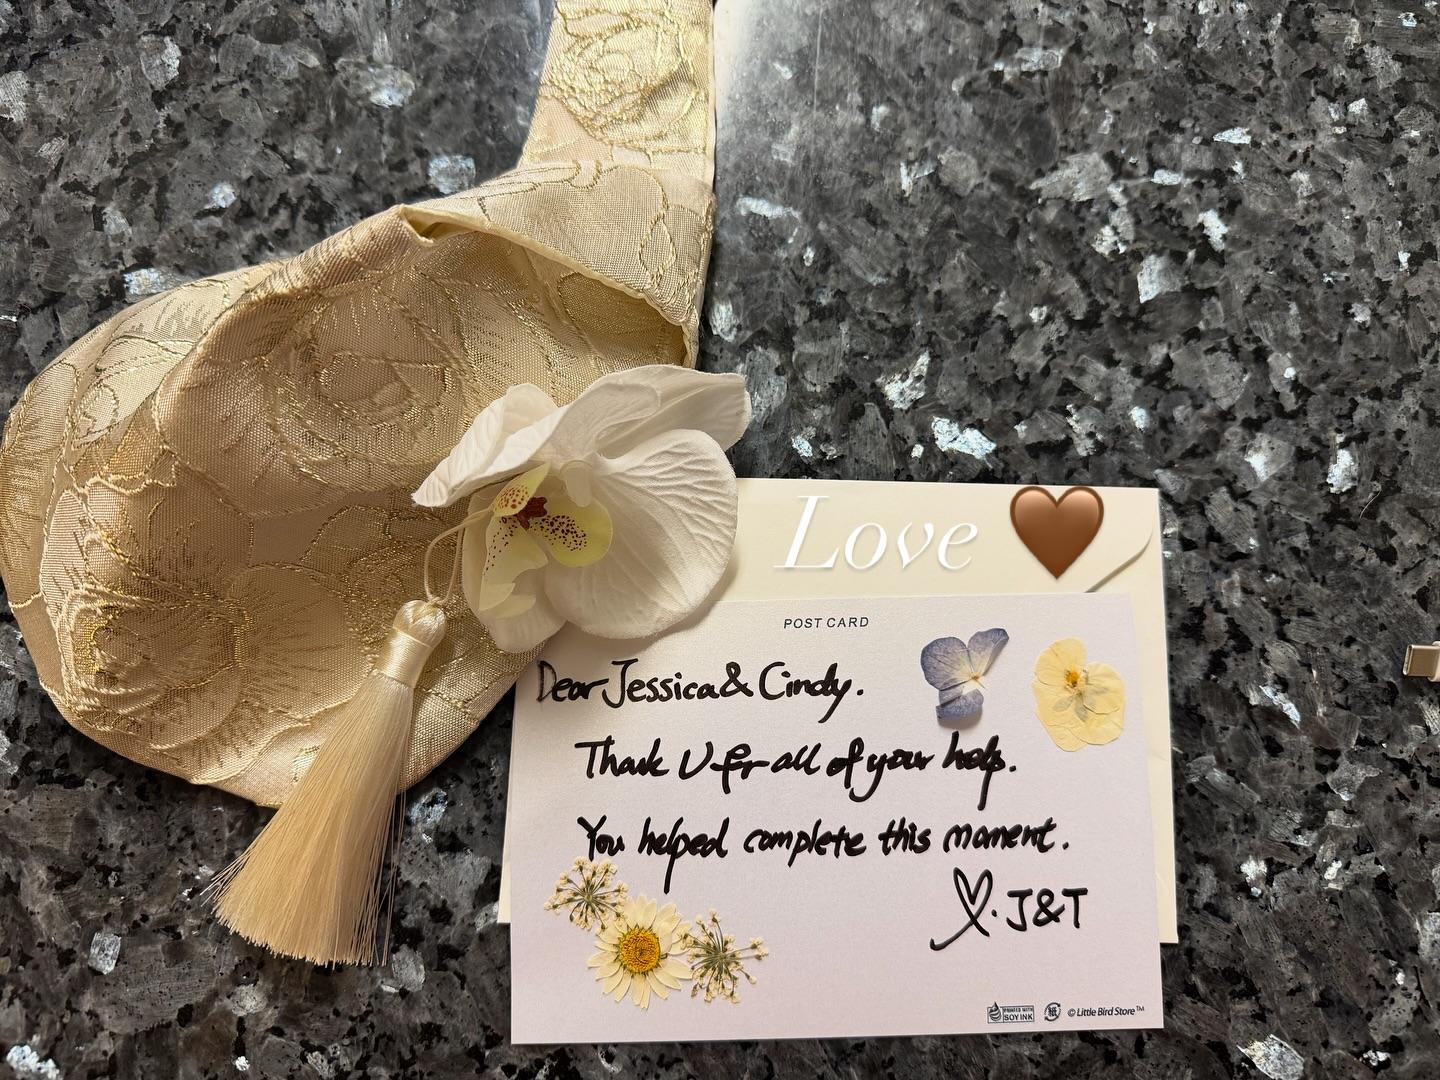 Love 🤎
POST CARD
Dear Jessica & Cindy.
Thank U for all of your help.
You helped complete this moment.
♡. J&T
PRINTED WITH
SOY INK
© Little Bird Store™